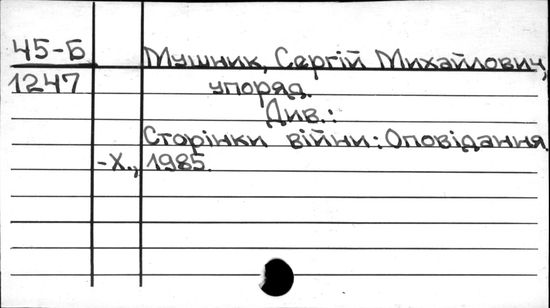 45-Б Мушник, Сергій Михайлович,
1247 упоряд.
Див.:
Сторінки війни: Оповідання.
-Х., 1985.